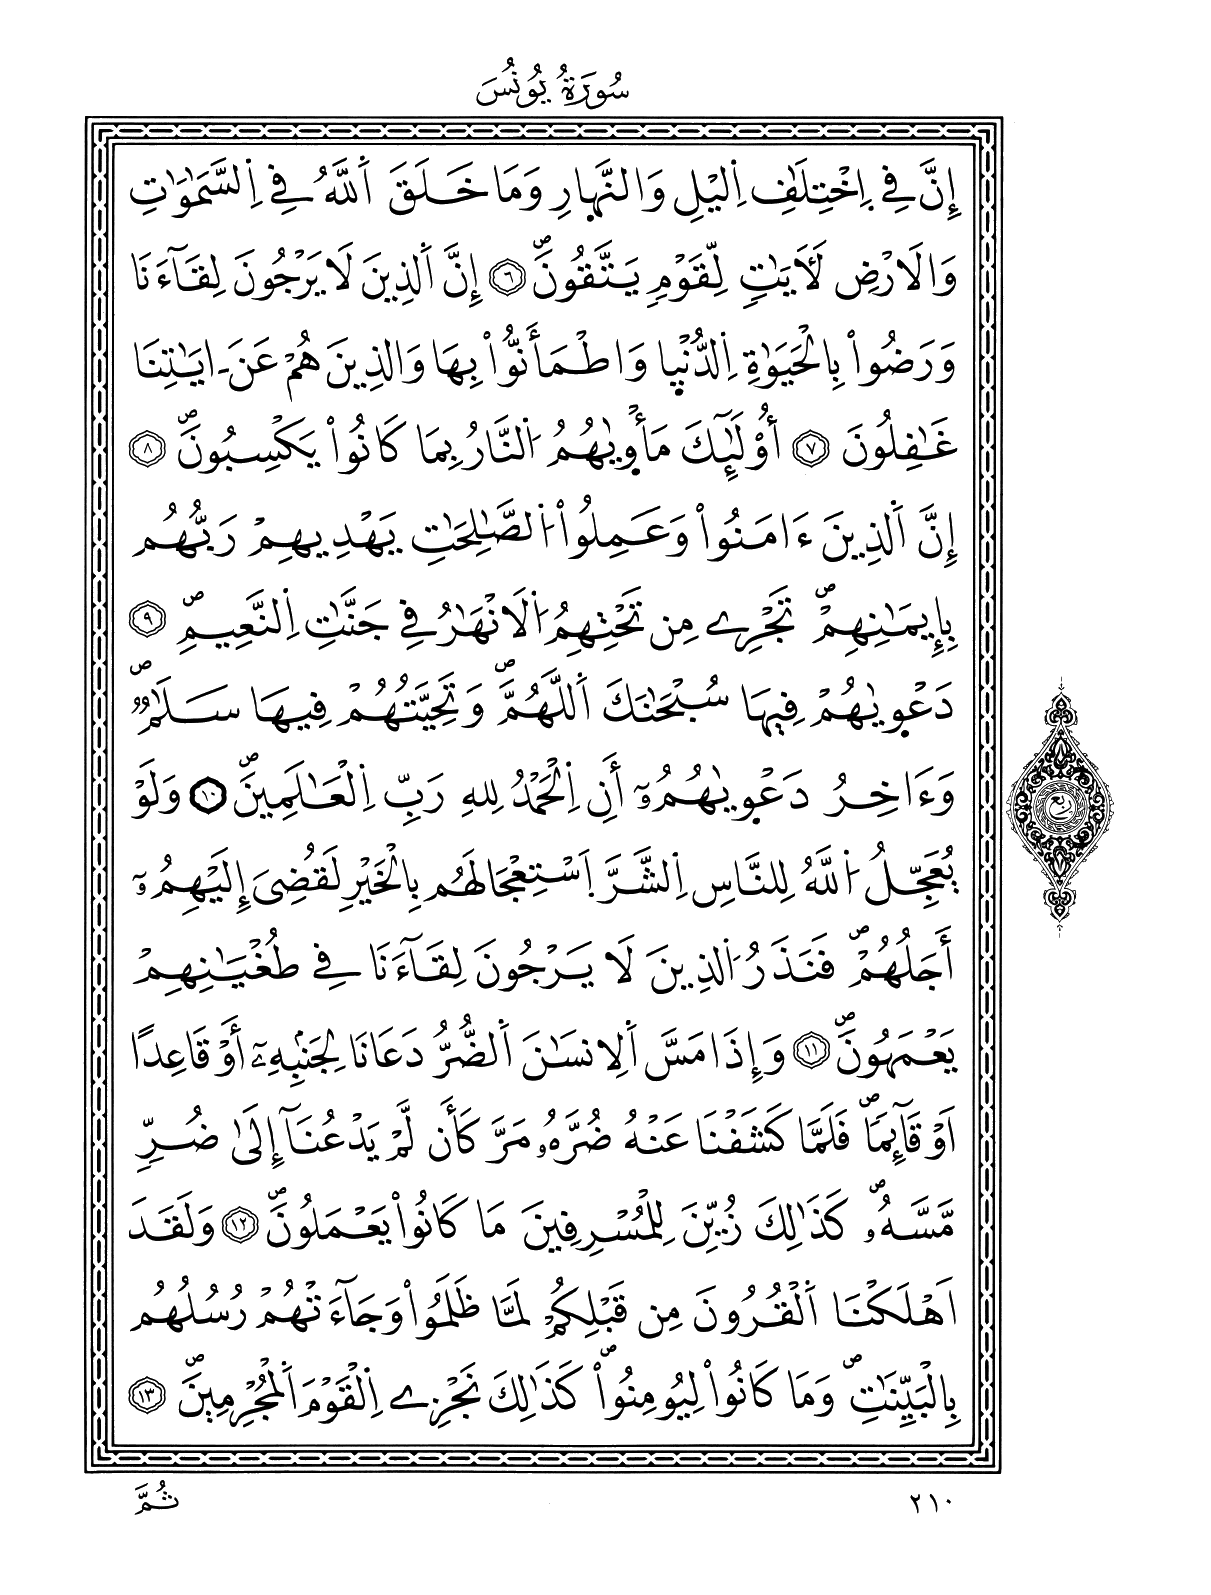 سُورَةُ يُونُسَ
إِنَّ فِے اِ۪خْتِلَٰفِ اِ۬ليْلِ وَالنَّه۪ارِ وَمَا خَلَقَ اَ۬للَّهُ فِے اِ۬لسَّمَٰوَٰتِ
وَالَارْضِ لَأٓيَٰتٖ لِّقَوْمٖ يَتَّقُونَۖ ٦ إِنَّ اَ۬لذِينَ لَا يَرْجُونَ لِقَآءَنَا
وَرَضُواْ بِالْحَيَوٰةِ اِ۬لدُّنْي۪ا وَاطْمَأَنُّواْ بِهَا وَالذِينَ هُمْ عَنَ ـايَٰتِنَا
غَٰفِلُونَ ٧ أُوْلَٰٓئِكَ مَأْو۪يٰهُمُ اُ۬لنَّارُ بِمَا كَانُواْ يَكْسِبُونَۖ ٨
إِنَّ اَ۬لذِينَ ءَامَنُواْ وَعَمِلُواْ اُ۬لصَّٰلِحَٰتِ يَهْدِيهِمْ رَبُّهُم
بِإِيمَٰنِهِمْۖ تَجْرِے مِن تَحْتِهِمُ اُ۬لَانْهَٰرُ فِے جَنَّٰتِ اِ۬لنَّعِيمِۖ ٩
دَعْو۪يٰهُمْ فِيهَا سُبْحَٰنَكَ اَ۬للَّهُمَّۖ وَتَحِيَّتُهُمْ فِيهَا سَلَٰمٞۖ
وَءَاخِرُ دَعْو۪يٰهُمُۥٓ أَنِ اِ۬لْحَمْدُ لِلهِ رَبِّ اِ۬لْعَٰلَمِينَۖ ١٠ وَلَوْ
يُعَجِّلُ اُ۬للَّهُ لِلنَّاسِ اِ۬لشَّرَّ اَ۪سْتِعْجَالَهُم بِالْخَيْرِ لَقُضِيَ إِلَيْهِمُۥٓ
أَجَلُهُمْۖ فَنَذَرُ اُ۬لذِينَ لَا يَرْجُونَ لِقَآءَنَا فِے طُغْيَٰنِهِمْ
يَعْمَهُونَۖ ١١ وَإِذَا مَسَّ اَ۬لِانسَٰنَ اَ۬لضُّرُّ دَعَانَا لِجَنۢبِهِۦٓ أَوْ قَاعِداً
اَوْ قَآئِماٗۖ فَلَمَّا كَشَفْنَا عَنْهُ ضُرَّهُۥ مَرَّ كَأَن لَّمْ يَدْعُنَآ إِلَيٰ ضُرّٖ
مَّسَّهُۥۖ كَذَٰلِكَ زُيِّنَ لِلْمُسْرِفِينَ مَا كَانُواْ يَعْمَلُونَۖ ١٢ وَلَقَدَ
اَهْلَكْنَا اَ۬لْقُرُونَ مِن قَبْلِكُمْ لَمَّا ظَلَمُواْ وَجَآءَتْهُمْ رُسُلُهُم
بِالْبَيِّنَٰتِۖ وَمَا كَانُواْ لِيُومِنُواْۖ كَذَٰلِكَ نَجْزِے اِ۬لْقَوْمَ اَ۬لْمُجْرِمِينَۖ ١٣
ربع
٢١٠
ثُمَّ